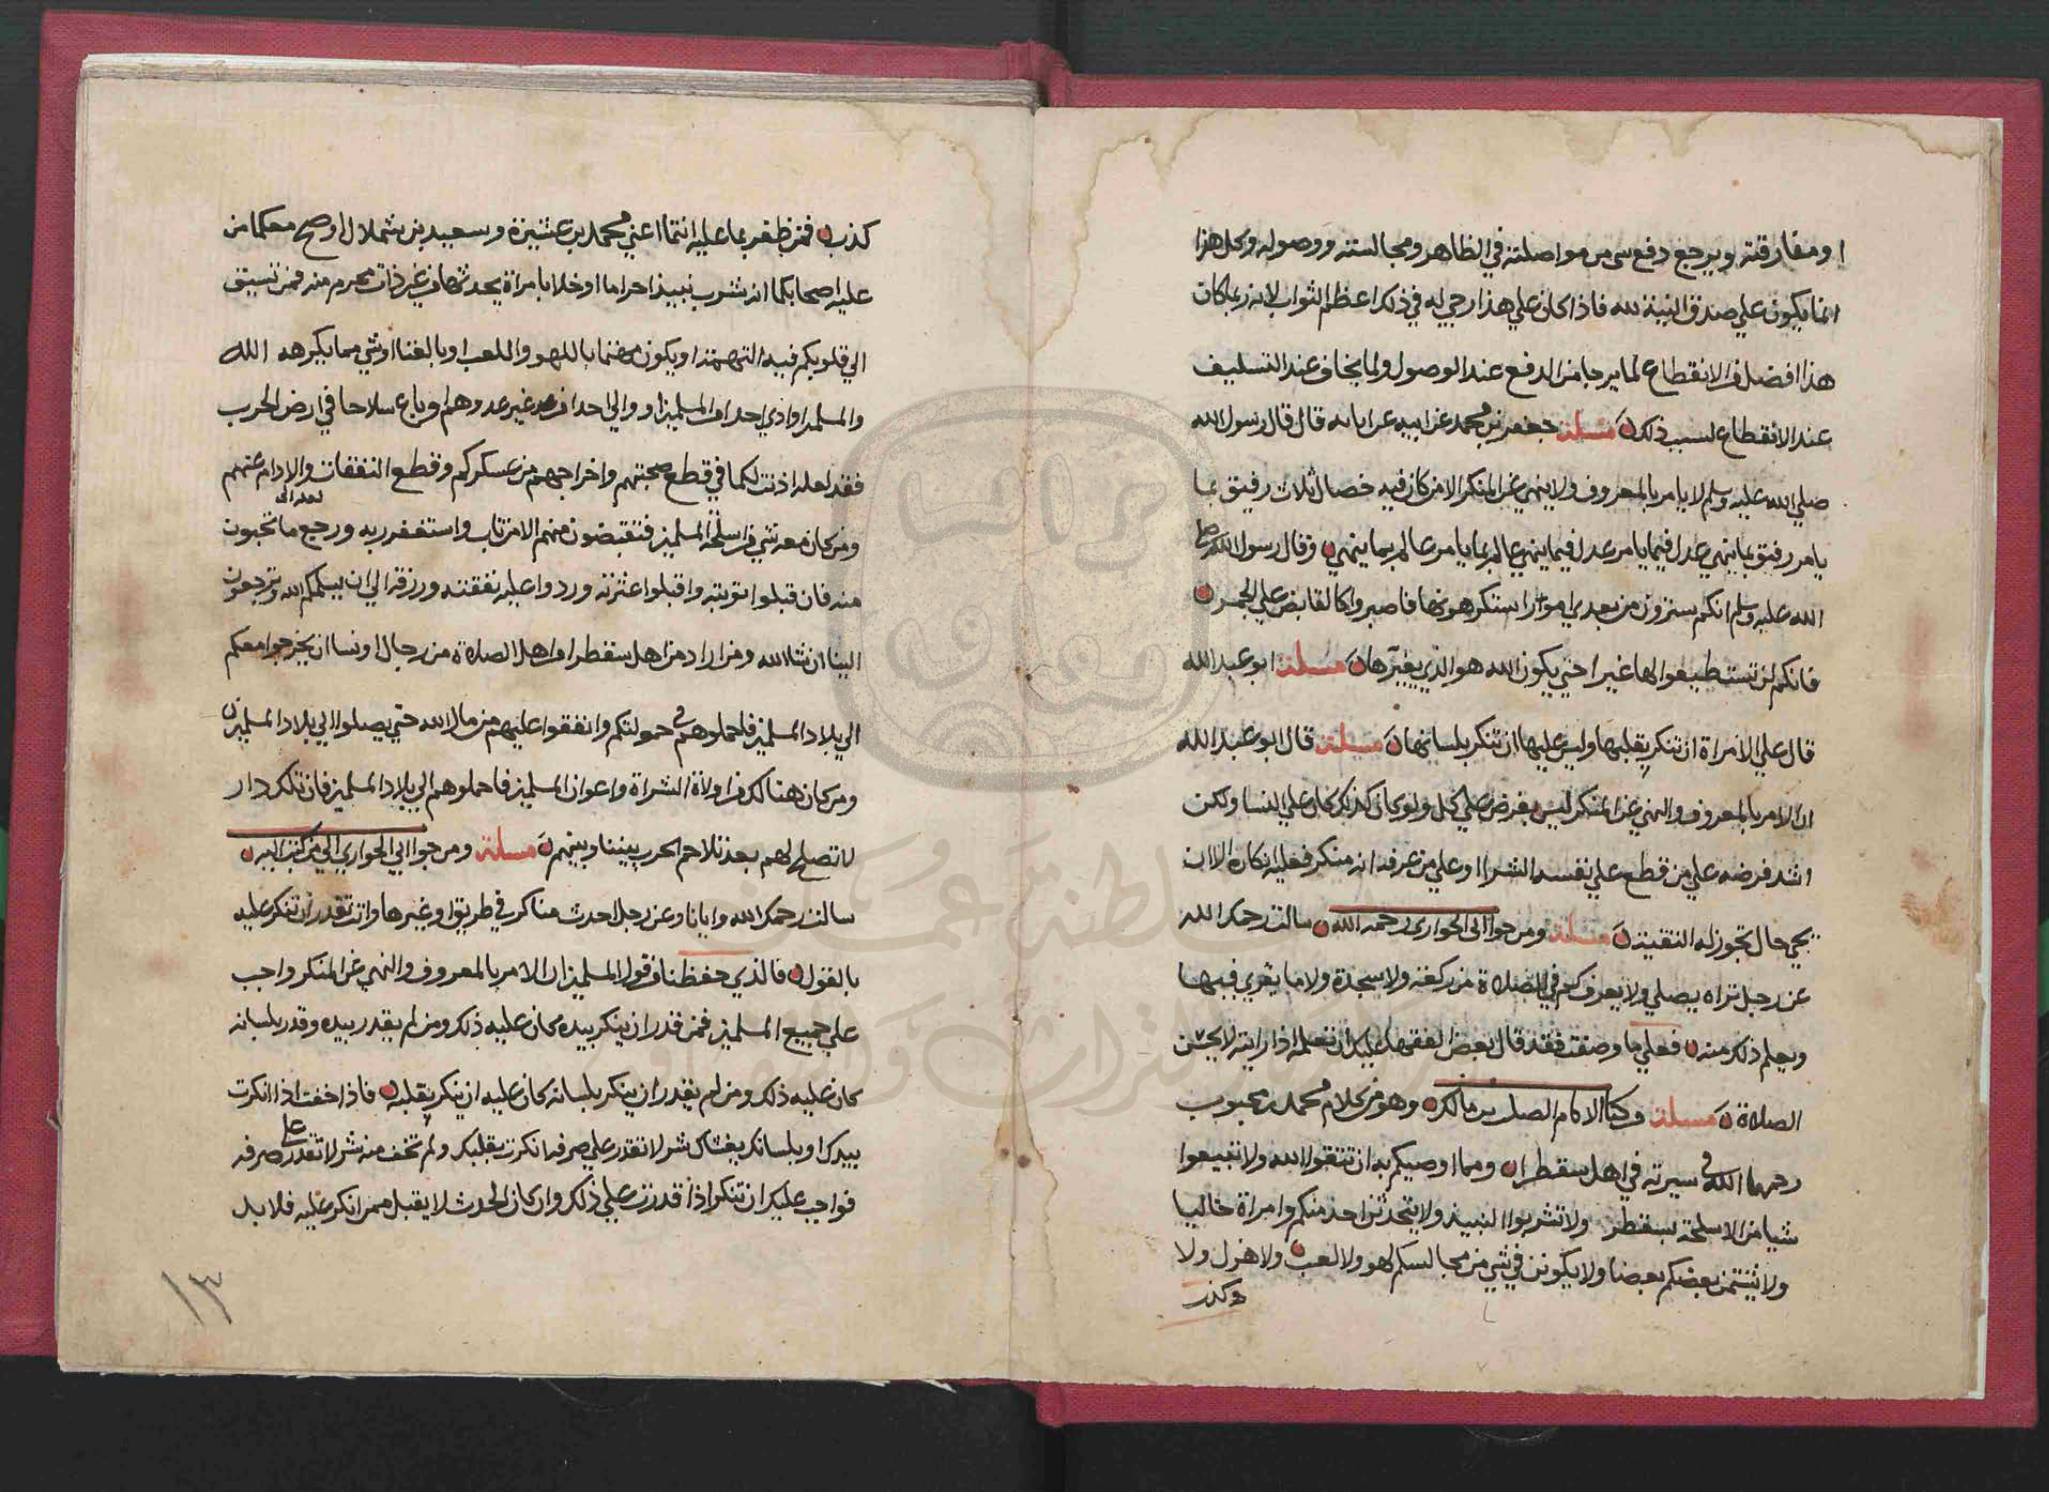 او مفارقته ويرجع دفع شي من مواصلته في الظاهر ومجالسته ووصوله وكل هذا
انما يكون علي صدق النية لله فاذا كان علي هذا رجي له في ذلك اعظم الثواب لانه ربما كان
هذا افضل من الانقطاع لما يرجا من الدفع عند الوصول ولما يخاف عند التسليف
عند الانقطاع لسبب ذلك مسلة جعفر بن محمد عن ابيه عن ابايه قال قال رسول الله
صلي الله عليه وسلم لا يامر بالمعروف ولا ينهي عن المنكر الا من كان فيه خصال ثلاث رفيق بما
يامر رفيق بما ينهي عدل فيما يامر عدل فيما ينهي عالم بما يامر عالم بما ينهي وقال رسول الله صلى
الله عليه وسلم انكم سترون من بعدي امورا ستكرهونها فاصبروا كالقابض علي الجمر
فانكم لن تستطيعوا لها غيرا حتي يكون الله هو الذي يغيرها مسلة ابو عبد الله
قال علي الامراة ان تنكر بقلبها وليس عليها ان تنكر بلسانها مسلة قال ابو عبد الله
ان الامر بالمعروف والنهي عن المنكر ليس بفرض علي كل ولو كان كذلك كان علي النسا ولكن
اشد فرضه علي من قطع علي نفسه الشرا او علي من عرف انه منكر فعليه انكاره الا ان
يجي حال تجوز له التقية مسلة ومن جواب ابي الحواري رحمه الله سالت رحمك الله
عن رجل تراه يصلي ولا يعرف كم في الصلاة من ركعة ولا سجدة ولا ما يقري فيها
ويعلم ذلك منه فعلي ما وصفت فقد قال بعض الفقها عليك ان تعلمه اذا رايته لا يحسن
الصلاة مسلة وكتاب الامام الصلت بن مالك وهو من كلام محمد بن محبوب
رحمهما الله في سيرته في اهل سقطرا ومما اوصيكم به ان تتقوا الله ولا تبيعوا
شيا من الاسلحة بسقطر ولا تشربوا النبيذ ولا يتحدثن احد منكم وامراة خاليا
ولا يشتمن بعضكم بعضا ولا يكونن في شي من مجالسكم لهو ولا لعب ولا هزل ولا
كذب
كذب فمن ظفر بما عليه انتما اعني محمد بن عشيرة وسعيد بن شملال اوضح معكما من
عليه اصحابكما انه شرب نبيذا حراما او خلا بامراة يحدثها من غير ذات محرم منه فمن تسبق
الي قلوبكم فيه التهمة او يكون مهتما باللهو واللعب او بالغنا او شي مما يكرهه الله
والمسلمون او اذي احدا من المسلمين او والي احدا من غير عدوهم او باع سلاحا في ارض الحرب
فقد اذنت لكما في قطع صحبتهم واخراجهم من عسكركم وقطع النفقات والادام عنهم
لعله الى
ومن كان معه شي من اسلحة المسلمين فتقبضون منهم الا من تاب واستغفر ربه ورجع ما تحبون
منه فان قبلوا توبته واقبلوا عثرته وردوا عليه نفقته ورزقه الي ان يسلمكم الله وترجعون
الينا ان شا الله ومن اراد من اهل سقطرا من اهل الصلاة من رجال او نسا ان يخرجوا معكم
الي بلاد المسلمين فاحملوهم في حمولتكم وانفقوا عليهم من مال الله حتي يصلوا الي بلاد المسلمين
ومن كان هنالك من اولاد الشراة واعوان المسلمين فاحملوهم الي بلاد المسلمين فان تلك دار
لا تصلح لهم بعد تلاحم الحرب بيننا وبينهم مسلة ومن جواب ابي الحواري الي من كتب اليه
سالت رحمك الله وايانا وعن رجل احدث منكر في طريق او غيرها وانت تقدر ان تنكر عليه
بالقول فالذي حفظنا من قول المسلمين ان الامر بالمعروف والنهي عن المنكر واجب
علي جميع المسلمين فمن قدر ان ينكر بيده كان عليه ذلك ومن لم يقدر بيده وقدر بلسانه
كان عليه ذلك ومن لم يقدر ان ينكر بلسانه كان عليه ان ينكر بقلبه فاذا خفت اذا انكرت
بيدك او بلسانك شر لا تقدر علي صرفه انكرت بقلبك ولم تخف منه شر لا تقدر على صرفه
فواجب عليك ان تنكر اذا قدرت علي ذلك وان كان الحدث لا يقبل ممن انكر عليه فلا بد
١٣